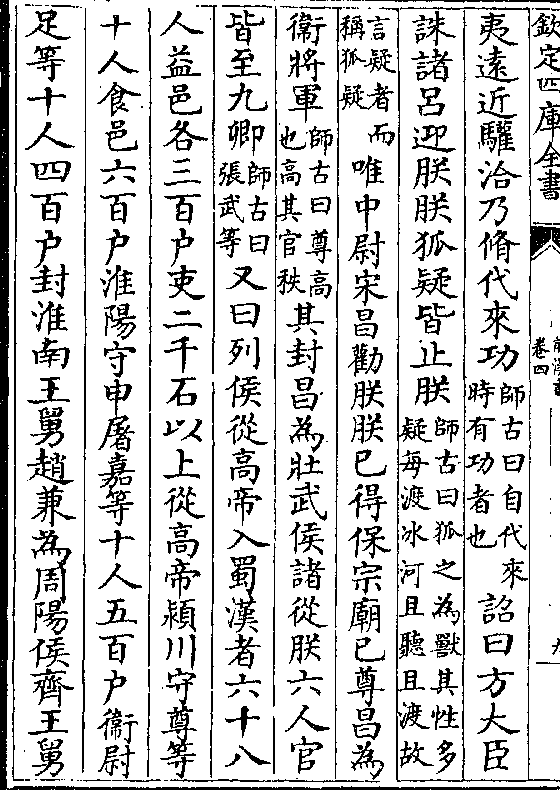 欽定四庫全書
卷四
夷遠近驩洽乃脩代來功師古曰自代來時有功者也詔曰方大臣
誅諸呂迎朕朕狐疑皆止朕師古曰狐之為獸其性多疑每渡冰河且聽且渡故
言疑者而稱狐疑唯中尉宋昌勸朕朕已得保宗廟已尊昌為
衞將軍師古曰尊高也高其官秩其封昌為壯武侯諸從朕六人官
皆至九卿師古曰張武等又曰列侯從高帝入蜀漢者六十八
人益邑各三百户吏二千石以上從高帝潁川守尊等
十人食邑六百户淮陽守申屠嘉等十人五百户衞尉
足等十人四百户封淮南王舅趙兼為周陽侯齊王舅